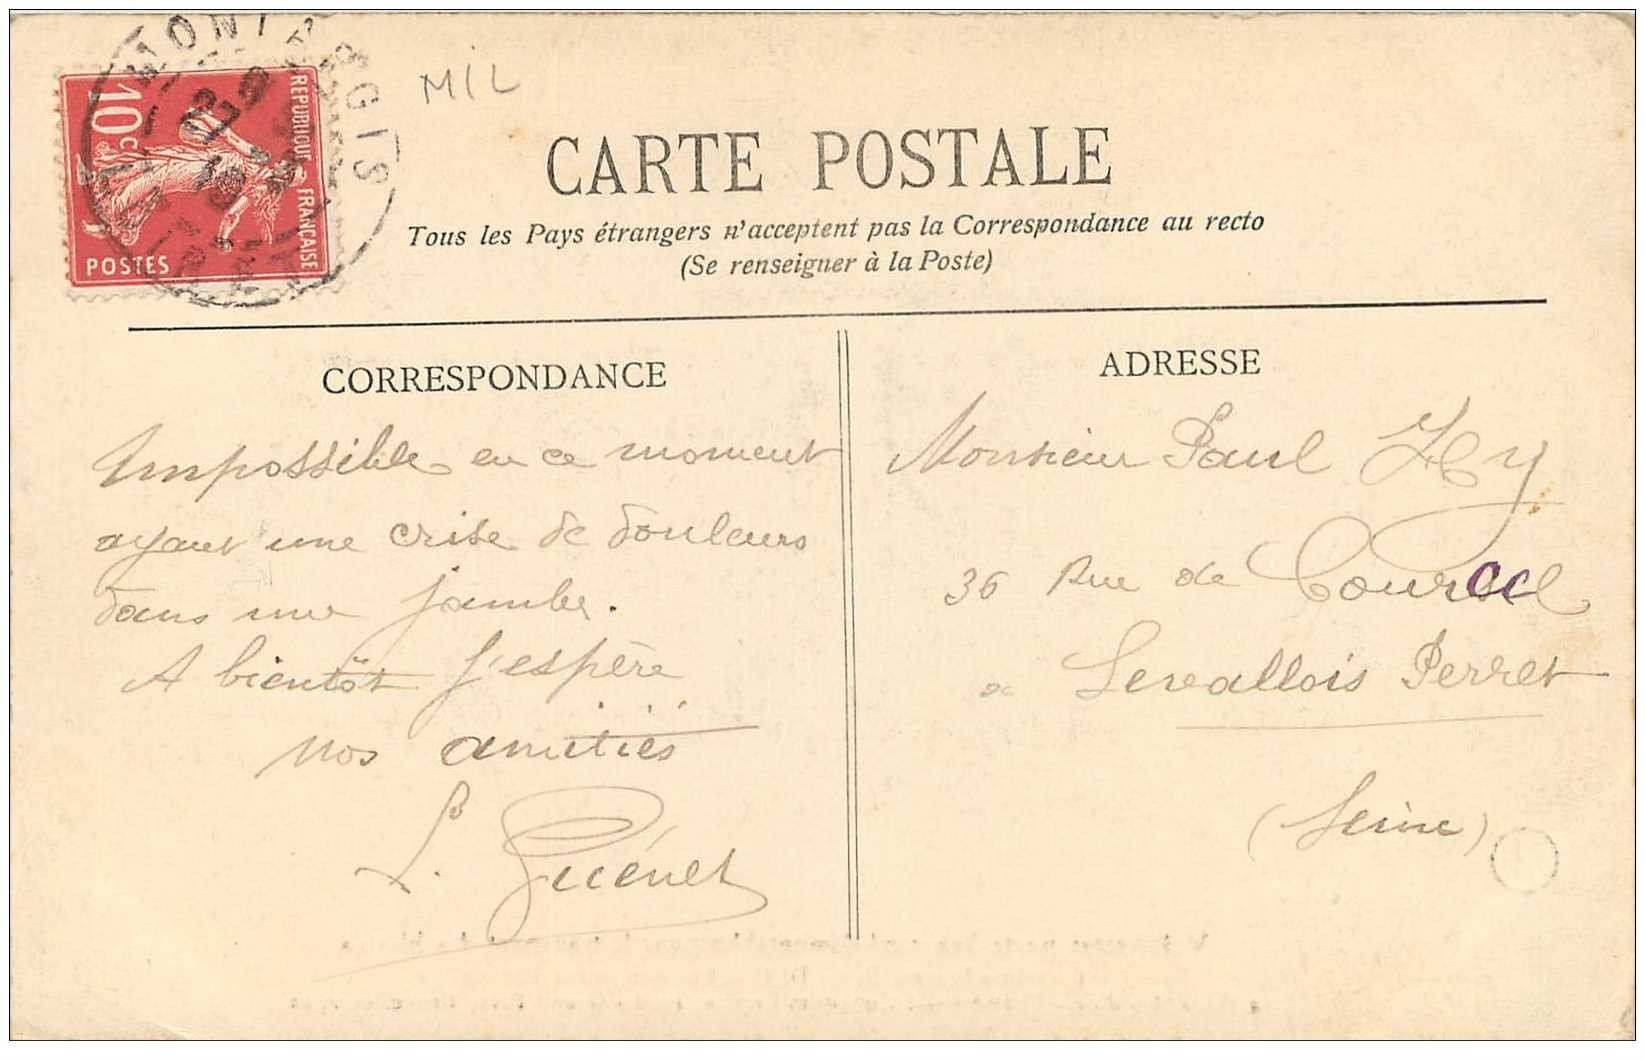 MONTARGIS
REPUBLIQUE FRANÇAISE
10c
POSTES
MIL
CARTE POSTALE
Tous les Pays étrangers n'acceptent pas la Correspondance au recto
(Se renseigner à la Poste)
CORRESPONDANCE
Impossible en ce moment
ayant une crise de douleurs
dans une jambe.
A bientôt j'espère
nos amitiés
L. Guénet
ADRESSE
Monsieur Paul Hy
36 Rue de
Levallois Perret
(Seine)